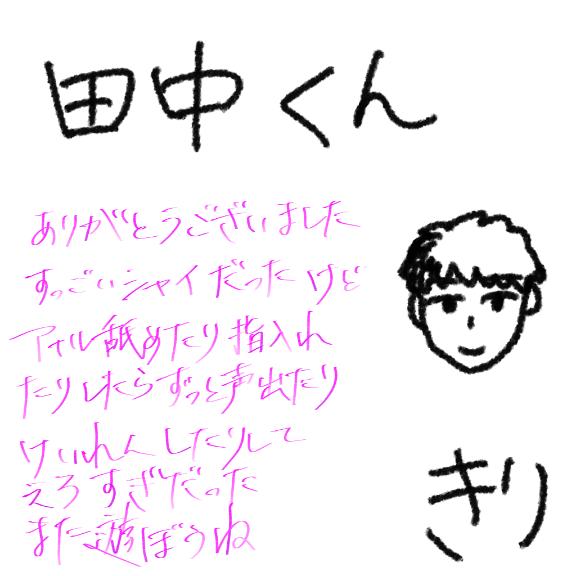 田中くん
ありがとうございました
すっごいシャイだったけど
アナル舐めたり指入れ
たりしたらずっと声出たり
けいれんしたりして
えろすぎだった
また遊ぼうね
きり